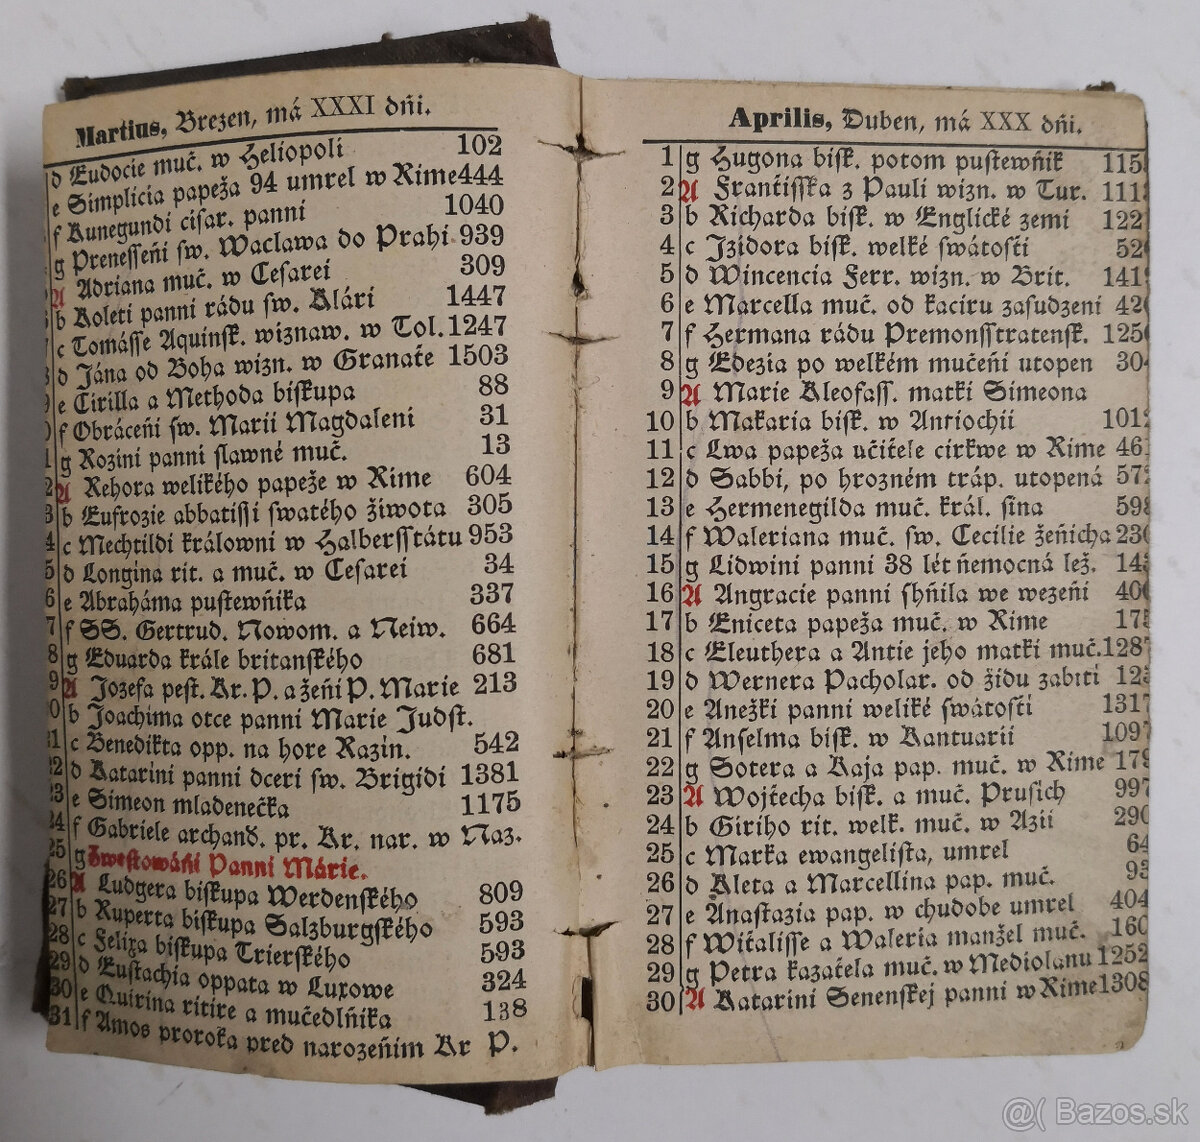 Martius, Brezen, má XXXI dňi.
d Eudocie muč. w Heliopoli 102
e Simplicia papeža 94 umrel w Rime 444
f Kunegundi cisar. panni 1040
g Preneseňi sw. Waclawa do Prahi 939
A Adriana muč. w Cesarei 309
b Koleti panni rádu sw. Klári 1447
c Tomásse Aquinsk. wiznaw. w Tol. 1247
d Jána od Boha wizn. w Granaťe 1503
9 e Cirilla a Methoda biskupa 88
0 f Obráceňi sw. Marii Magdaleni 31
1 g Rozini panni slawné muč. 13
2 A Rehora welikého papeže w Rime 604
3 b Eufrozie abbatissi swatého žiwota 305
4 c Mechtildi králowni w Halbersstátu 953
5 d Longina rit. a muč. w Cesarei 34
6 e Abraháma pustewňika 337
7 f SS. Gertrud. Nowom. a Neiw. 664
8 g Eduarda krále britanského 681
9 A Jozefa pest. Kr. P. a žeňi P. Marie 213
20 b Joachima otce panni Marie Judst.
21 c Benedikta opp. na hore Kazin. 542
22 d Katarini panni dceri sw. Brigidi 1381
23 e Simeon mladenečka 1175
24 f Gabriele archand. pr. Kr. nar. w Naz.
25 g Zwestowáňi Panni Márie.
26 A Ludgera biskupa Werdenského 809
27 b Ruperta biskupa Salzburgského 593
28 c Felixa biskupa Trierského 593
29 d Eustachia oppata w Luxowe 324
30 e Quirina ritire a mučedlňika 138
31 f Amos proroka pred narozeňim Kr P.
Aprilis, Duben, má XXX dňi.
1 g Hugona bisk. potom pustewňik 115
2 A Frantisska z Pauli wizn. w Tur. 111
3 b Richarda bisk. w Englické zemi 122
4 c Izidora bisk. welké swátosti 52
5 d Wincencia Ferr. wizn. w Brit. 141
6 e Marcella muč. od kaciru zasudzeni 42
7 f Hermana rádu Premonsstratensk. 125
8 g Edezia po welkém mučeňi utopen 304
9 A Marie Kleofass. matki Simeona
10 b Makaria bisk. w Antiochii 101
11 c Lwa papeža učiťele cirkwe w Rime 461
12 d Sabbi, po hrozném tráp. utopená 572
13 e Hermenegilda muč. král. sina 598
14 f Waleriana muč. sw. Cecilie žeňicha 230
15 g Lidwini panni 38 lét ňemocná lež. 14
16 A Angracie panni shňila we wezeňi 400
17 b Eniceta papeža muč. w Rime 175
18 c Eleuthera a Antie jeho matki muč. 1287
19 d Wernera Pacholar. od židu zabiti 125
20 e Anežki panni weliké swátosti 1317
21 f Anselma bisk. w Kantuarii 1097
22 g Sotera a Kaja pap. muč. w Rime 179
23 A Wojťecha bisk. a muč. Prusich 997
24 b Giriho rit. welk. muč. w Azii 290
25 c Marka ewangelista, umrel 64
26 d Kleta a Marcellina pap. muč. 93
27 e Anastazia pap. w chudobe umrel 404
28 f Witalisse a Waleria manžel muč. 160
29 g Petra kazaťela muč. w Mediolanu 1252
30 A Katarini Senenskej panni w Rime 1308
@( Bazos.sk